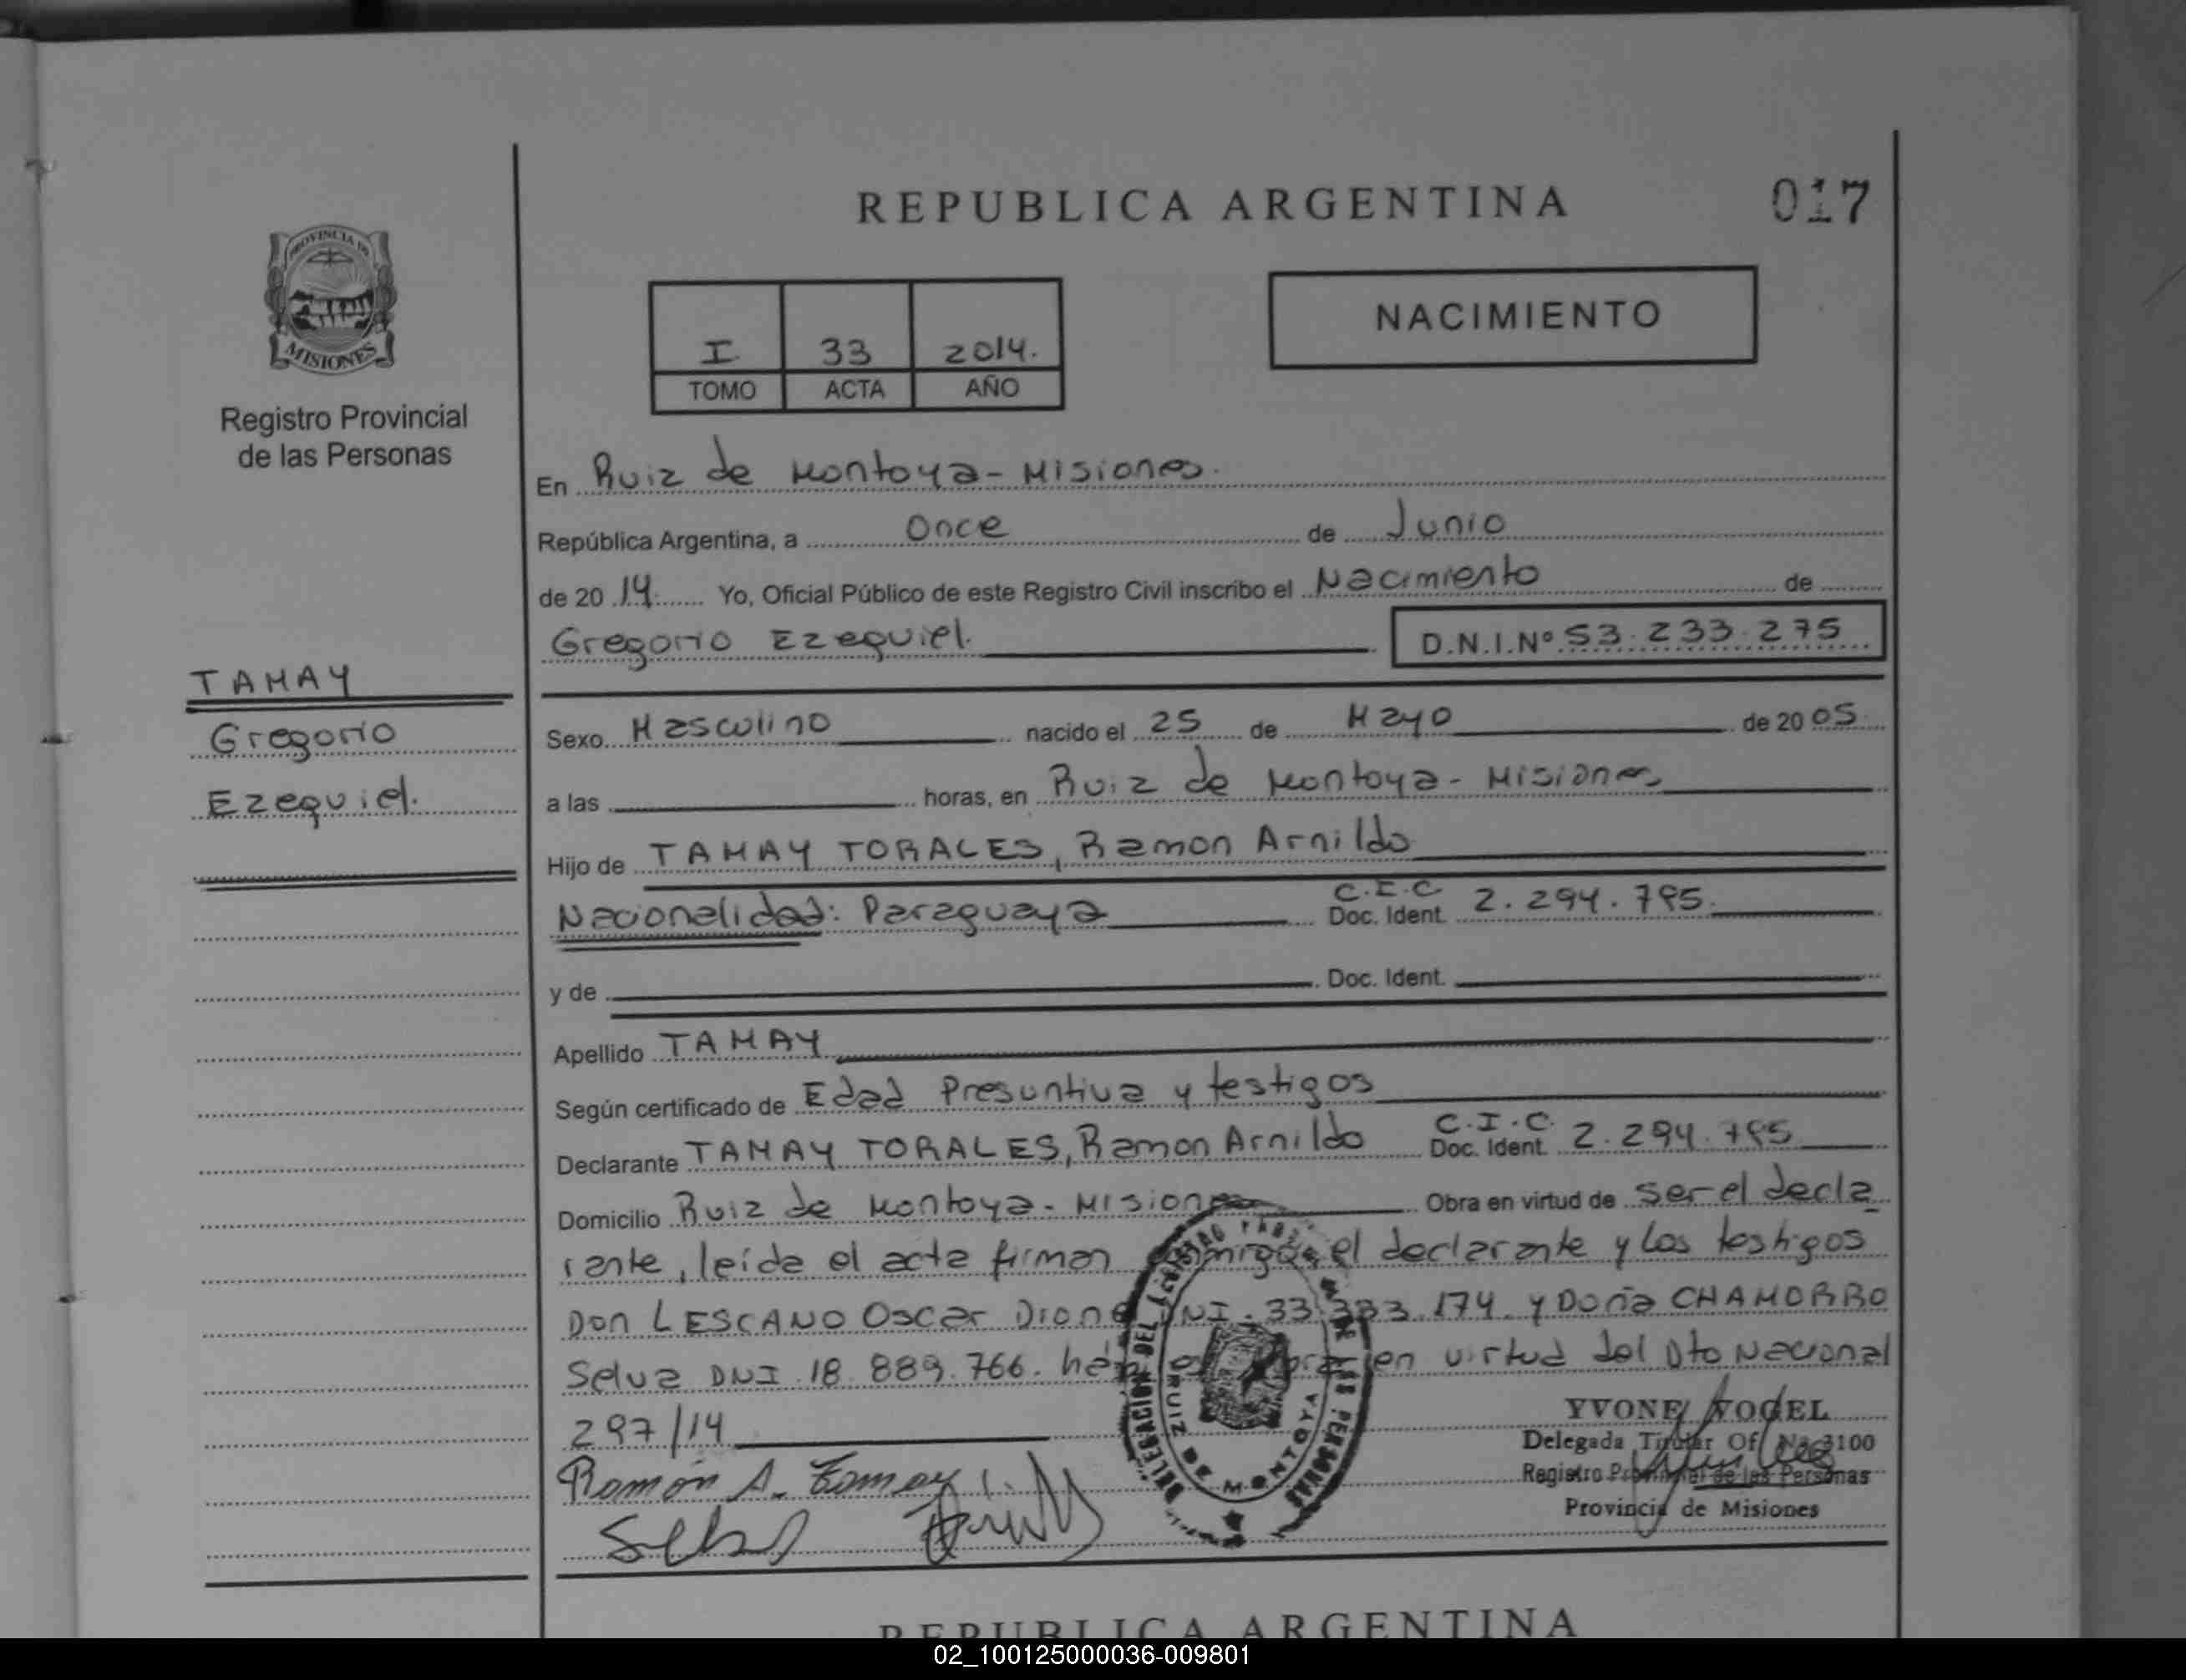 REPUBLICA ARGENTINA
017
PROVINCIA DE
MISIONES
Registro Provincial
de las Personas
NACIMIENTO
I 33 2014.
TOMO ACTA AÑO
En Ruiz de Montoya - Misiones.
República Argentina, a Once de Junio
de 2014. Yo, Oficial Público de este Registro Civil inscribo el Nacimiento de
Gregorio Ezequiel. D.N.I.Nº 53.233.275
TAMAY
Gregorio
Ezequiel.
Sexo Masculino nacido el 25 de Mayo de 2005.
a las horas, en Ruiz de Montoya - Misiones
Hijo de TAMAY TORALES, Ramon Arnildo
Nacionalidad: Paraguaya C.I.C. Doc. Ident. 2.294.795.
y de Doc. Ident.
Apellido TAMAY
Según certificado de Edad Presuntiva y testigos
Declarante TAMAY TORALES, Ramon Arnildo C.I.C. Doc. Ident. 2.294.795
Domicilio Ruiz de Montoya - Misiones Obra en virtud de ser el decla
rante, leída el acta firman conmigo el declarante y los testigos
Don LESCANO Oscar DNI. 33.333.174. y Doña CHAMORRO
Selva DNI 18.889.766. en virtud del Dto Nacional
297/14
Ramón A. Tamay
Selva
DELEGACION DEL REGISTRO DE LAS PERSONAS
RUIZ DE MONTOYA
YVONE VOGEL
Delegada Titular Of. Na. 3100
Registro Provincial de las Personas
Provincia de Misiones
REPUBLICA ARGENTINA
02_100125000036-009801